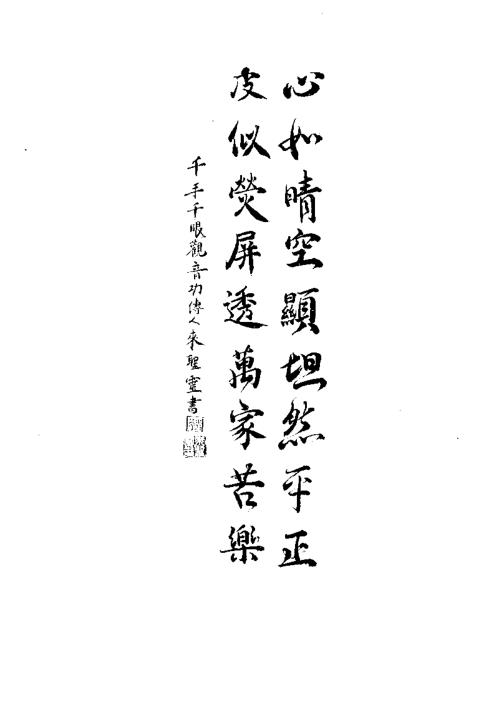 心如晴空顯坦然平正
皮似熒屏透萬家苦樂
千手千眼觀音功傳人來聖靈書